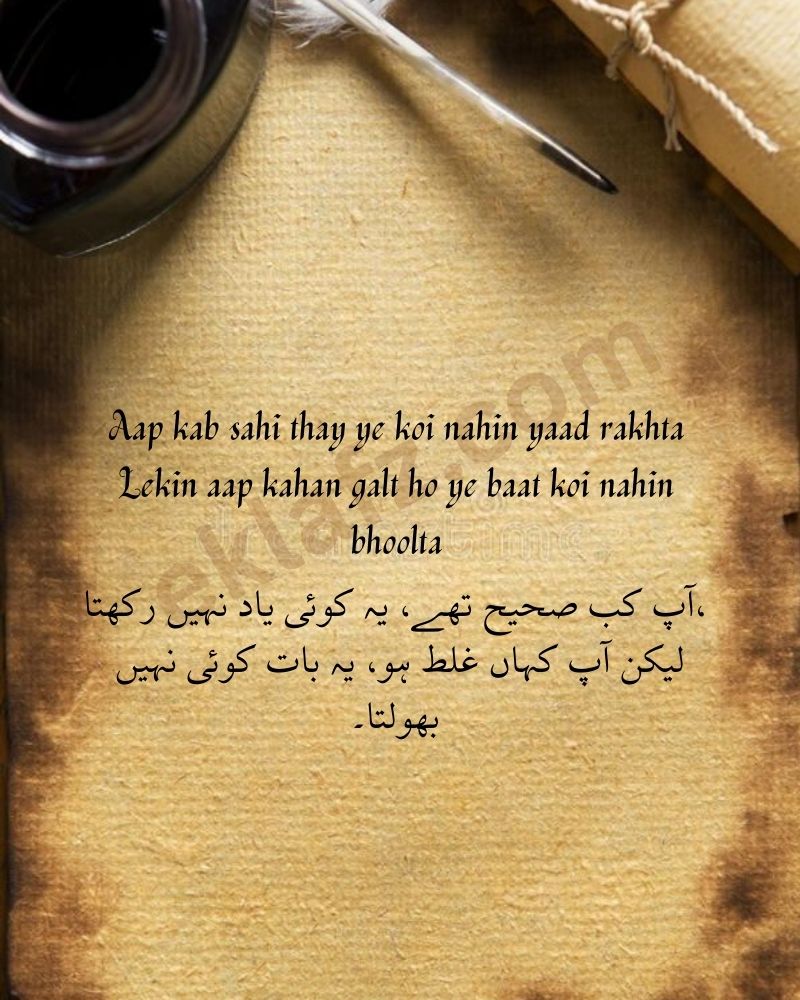 Aap kab sahi thay ye koi nahin yaad rakhta
Lekin aap kahan galt ho ye baat koi nahin
bhoolta
آپ کب صحیح تھے، یہ کوئی یاد نہیں رکھتا،
لیکن آپ کہاں غلط ہو، یہ بات کوئی نہیں
بھولتا۔
eklafz.com